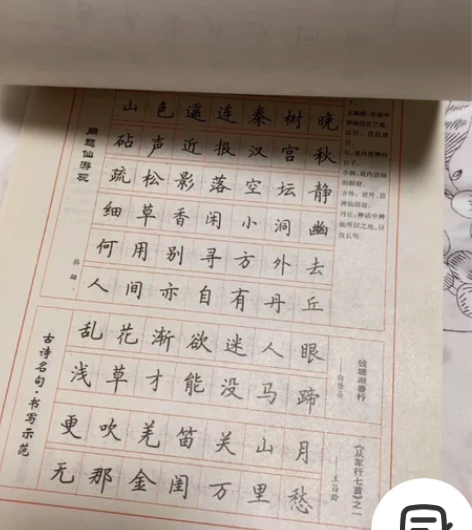 同题仙游观
山色遥连秦树晚
砧声近报汉宫秋
疏松影落空坛静
细草香闲小洞幽
何用别寻方外去
人间亦自有丹丘
古诗名句·书写示范
乱花渐欲迷人眼
浅草才能没马蹄
钱塘湖春行
更吹羌笛关山月
无那金闺万里愁
《从军行七首》之一
——王昌龄